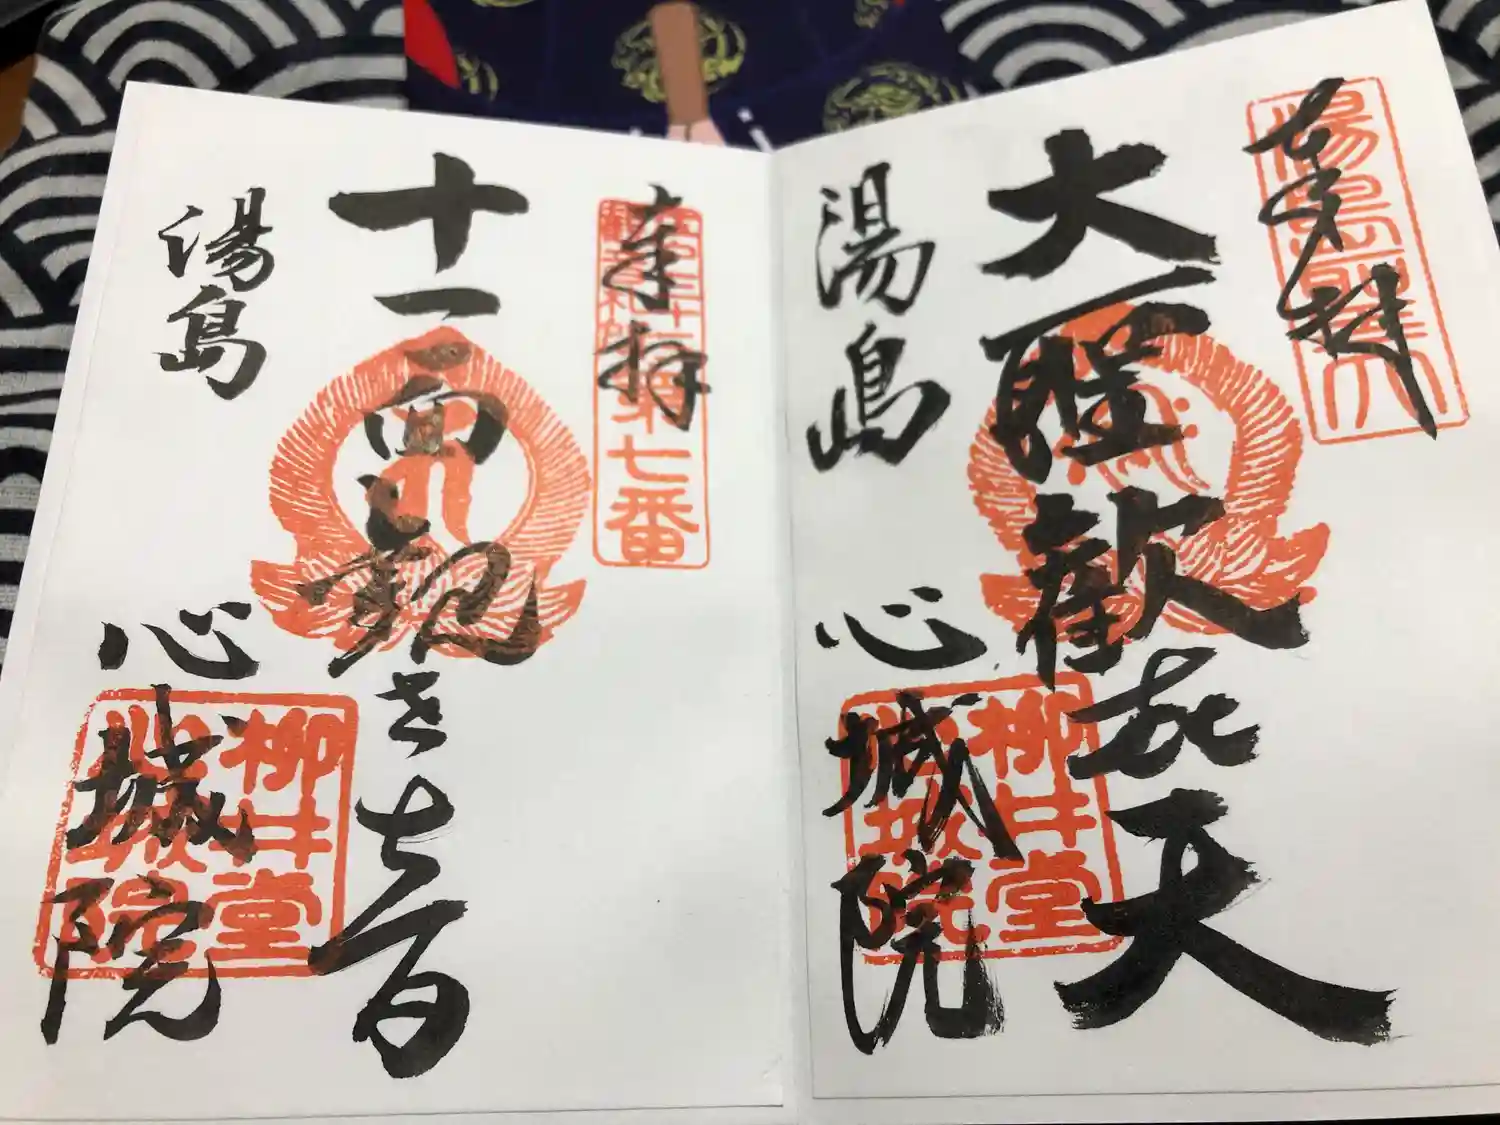 奉拝
湯島聖天
大聖歓喜天
湯島 心城院
柳井堂
心城院
奉拝
江戸三十三
観音札所
第七番
十一面観世音
湯島 心城院
柳井堂
心城院